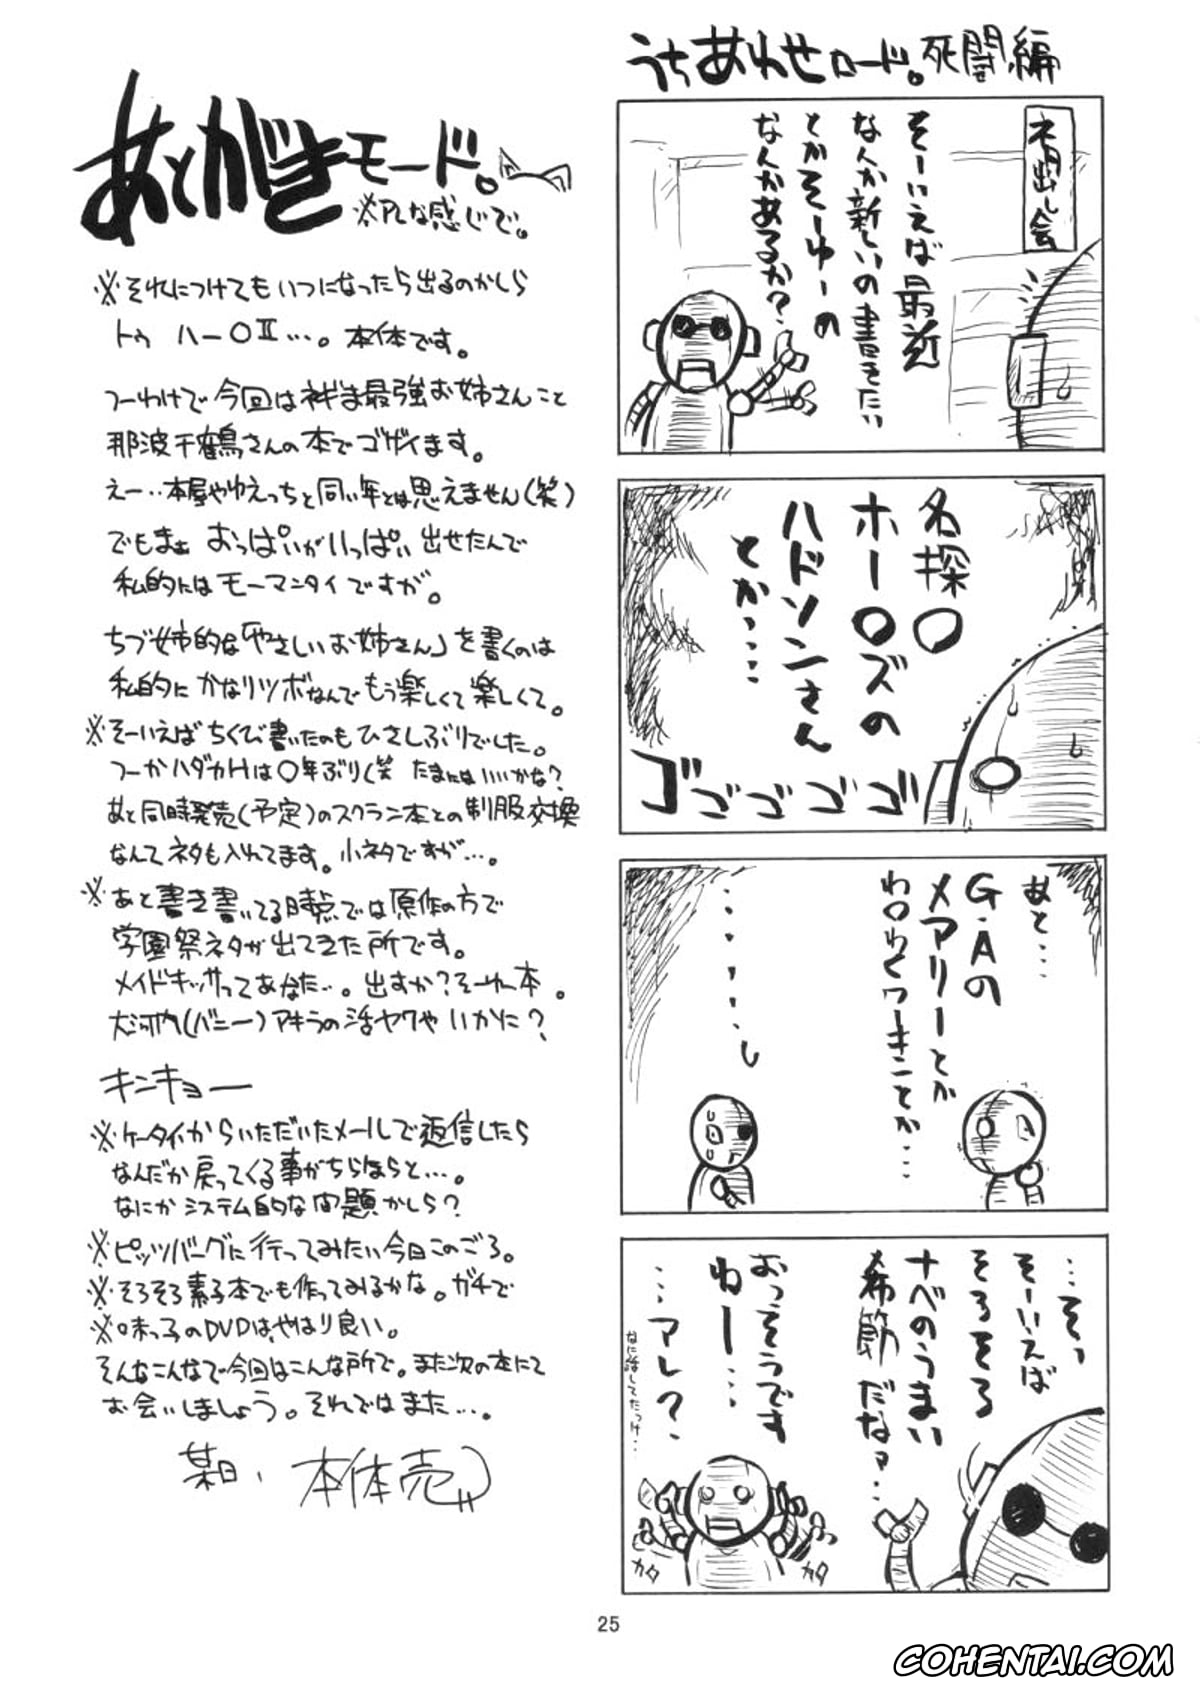 うちあわせロード。死闘編
ネタ出し会
そーいえば最近
なんか新しいの書きたい
とかそーゆーの
なんかあるか?
名探〇
ホー〇ズの
ハドソンさん
とか‥‥
ゴゴゴゴゴ
あと‥‥
G・Aの
メアリーとか
わ〇わくワーキンことか‥‥
‥‥そっ
そーいえば
そろそろ
ナベのうまい
希節だなァ‥‥
おっそうです
ねー‥‥
‥‥アレ?
なに話してたっけ‥‥
カタ
カタ
あとがきモード。
※アレな感じで。
※それにつけてもいつになったら出るのかしら
トゥ ハー〇Ⅱ‥‥。本体です。
つーわけで今回はネギま最強お姉さんこと
那波千鶴さんの本でゴザイます。
えー‥本屋やゆえっちと同い年とは思えません(笑)
でもまぁ おっぱいがいっぱい出せたんで
私的にはモーマンタイですが。
ちづ姉的な「やさしいお姉さん」を書くのは
私的にかなりツボなんでもう楽しくて楽しくて。
※そーいえばちくび書いたのもひさしぶりでした。
つーかハダカHは〇年ぶり(笑 たまにはいいかな?
あと同時発売(予定)のスクラン本との制服交換
なんてネタも入れてます。小ネタですが‥‥。
※あと書き書いてる時点では原作の方で
学園祭ネタが出てきた所です。
メイドキッサってあなた‥。出すか?そーゆー本。
大河内(バニー)アキラの活ヤクやいかに?
キンキョー
※ケータイからいただいたメールで返信したら
なんだか戻ってくる事がちらほらと‥‥。
なにかシステム的な問題かしら?
※ピッツバーグに行ってみたい今日このごろ。
※そろそろ素子本でも作ってみるかな。ガチで
※味っ子のDVDは、やはり良い。
そんなこんなで今回はこんな所で。また次の本にて
お会いしましょう。それではまた‥‥。
某日、本体売
25
COHENTAI.COM